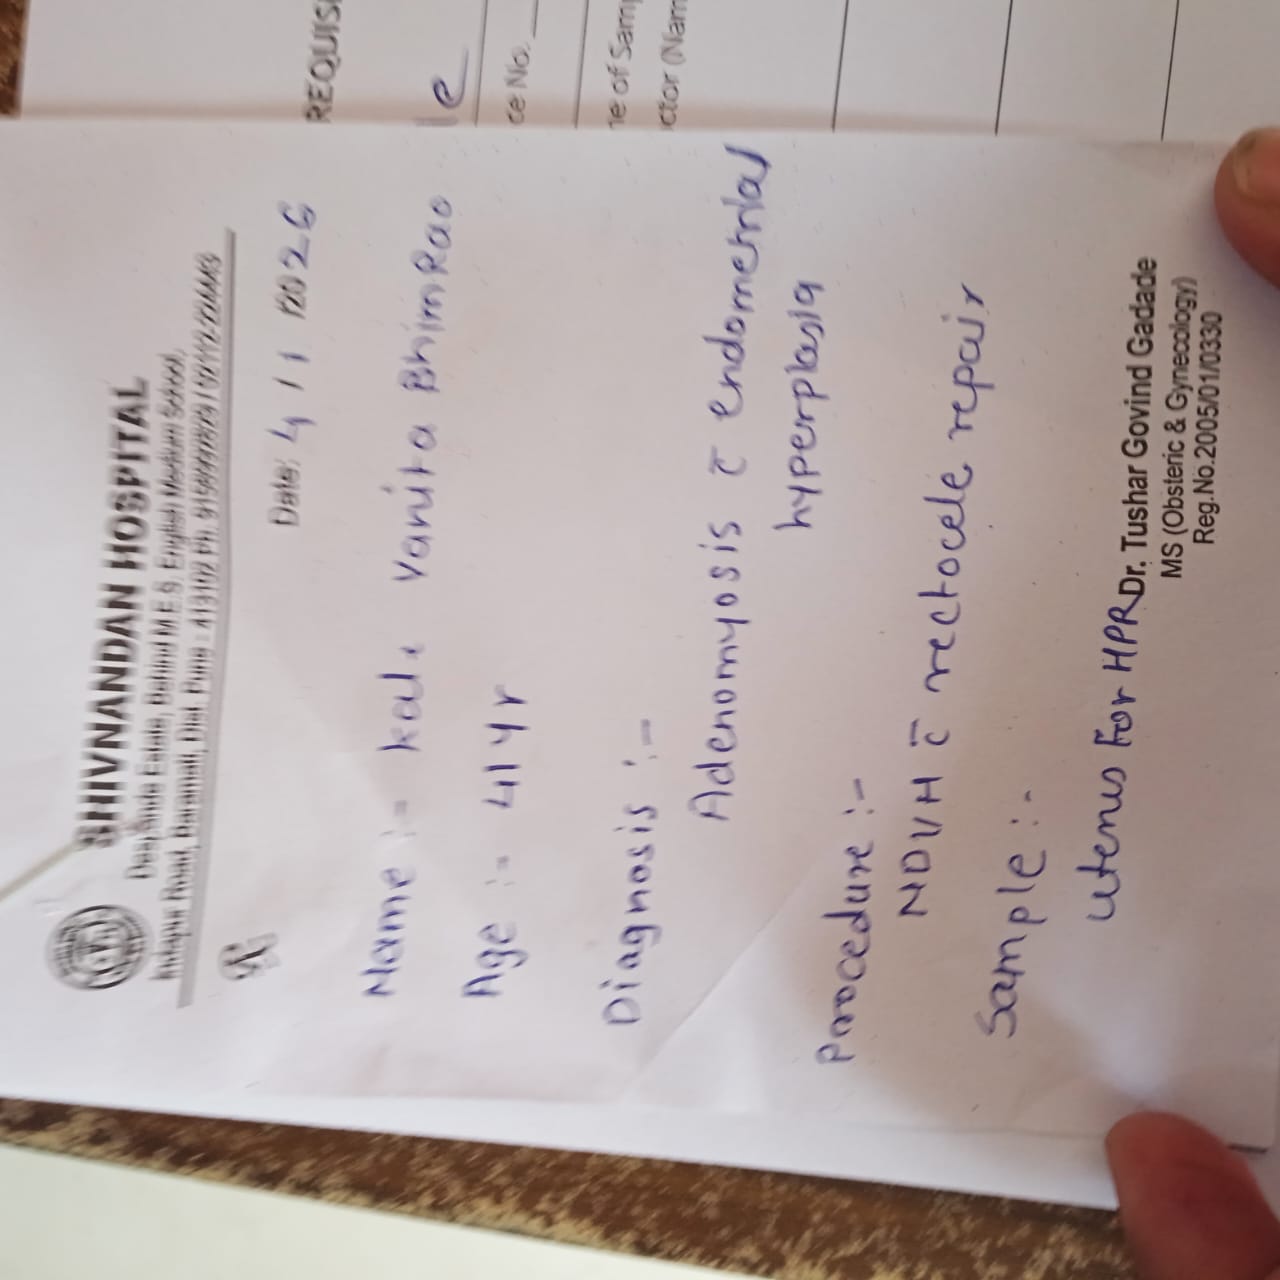 SHIVNANDAN HOSPITAL
Estate, Behind M.E.S. English Medium School,
Road, Baramati, Dist. Pune - 413102 Ph.
Date: 4 / 1 / 2026
Name :- Kale Vanita BhimRao
Age :- 41 Yr
Diagnosis :-
Adenomyosis c̄ endometrial
hyperplasia
Procedure :-
NDVH c̄ rectocele repair
Sample :-
Uterus For HPR
Dr. Tushar Govind Gadade
MS (Obsteric & Gynecology)
Reg.No.2005/01/0330
REQUIS
le
ce No.
e of Sam
ctor (Nam